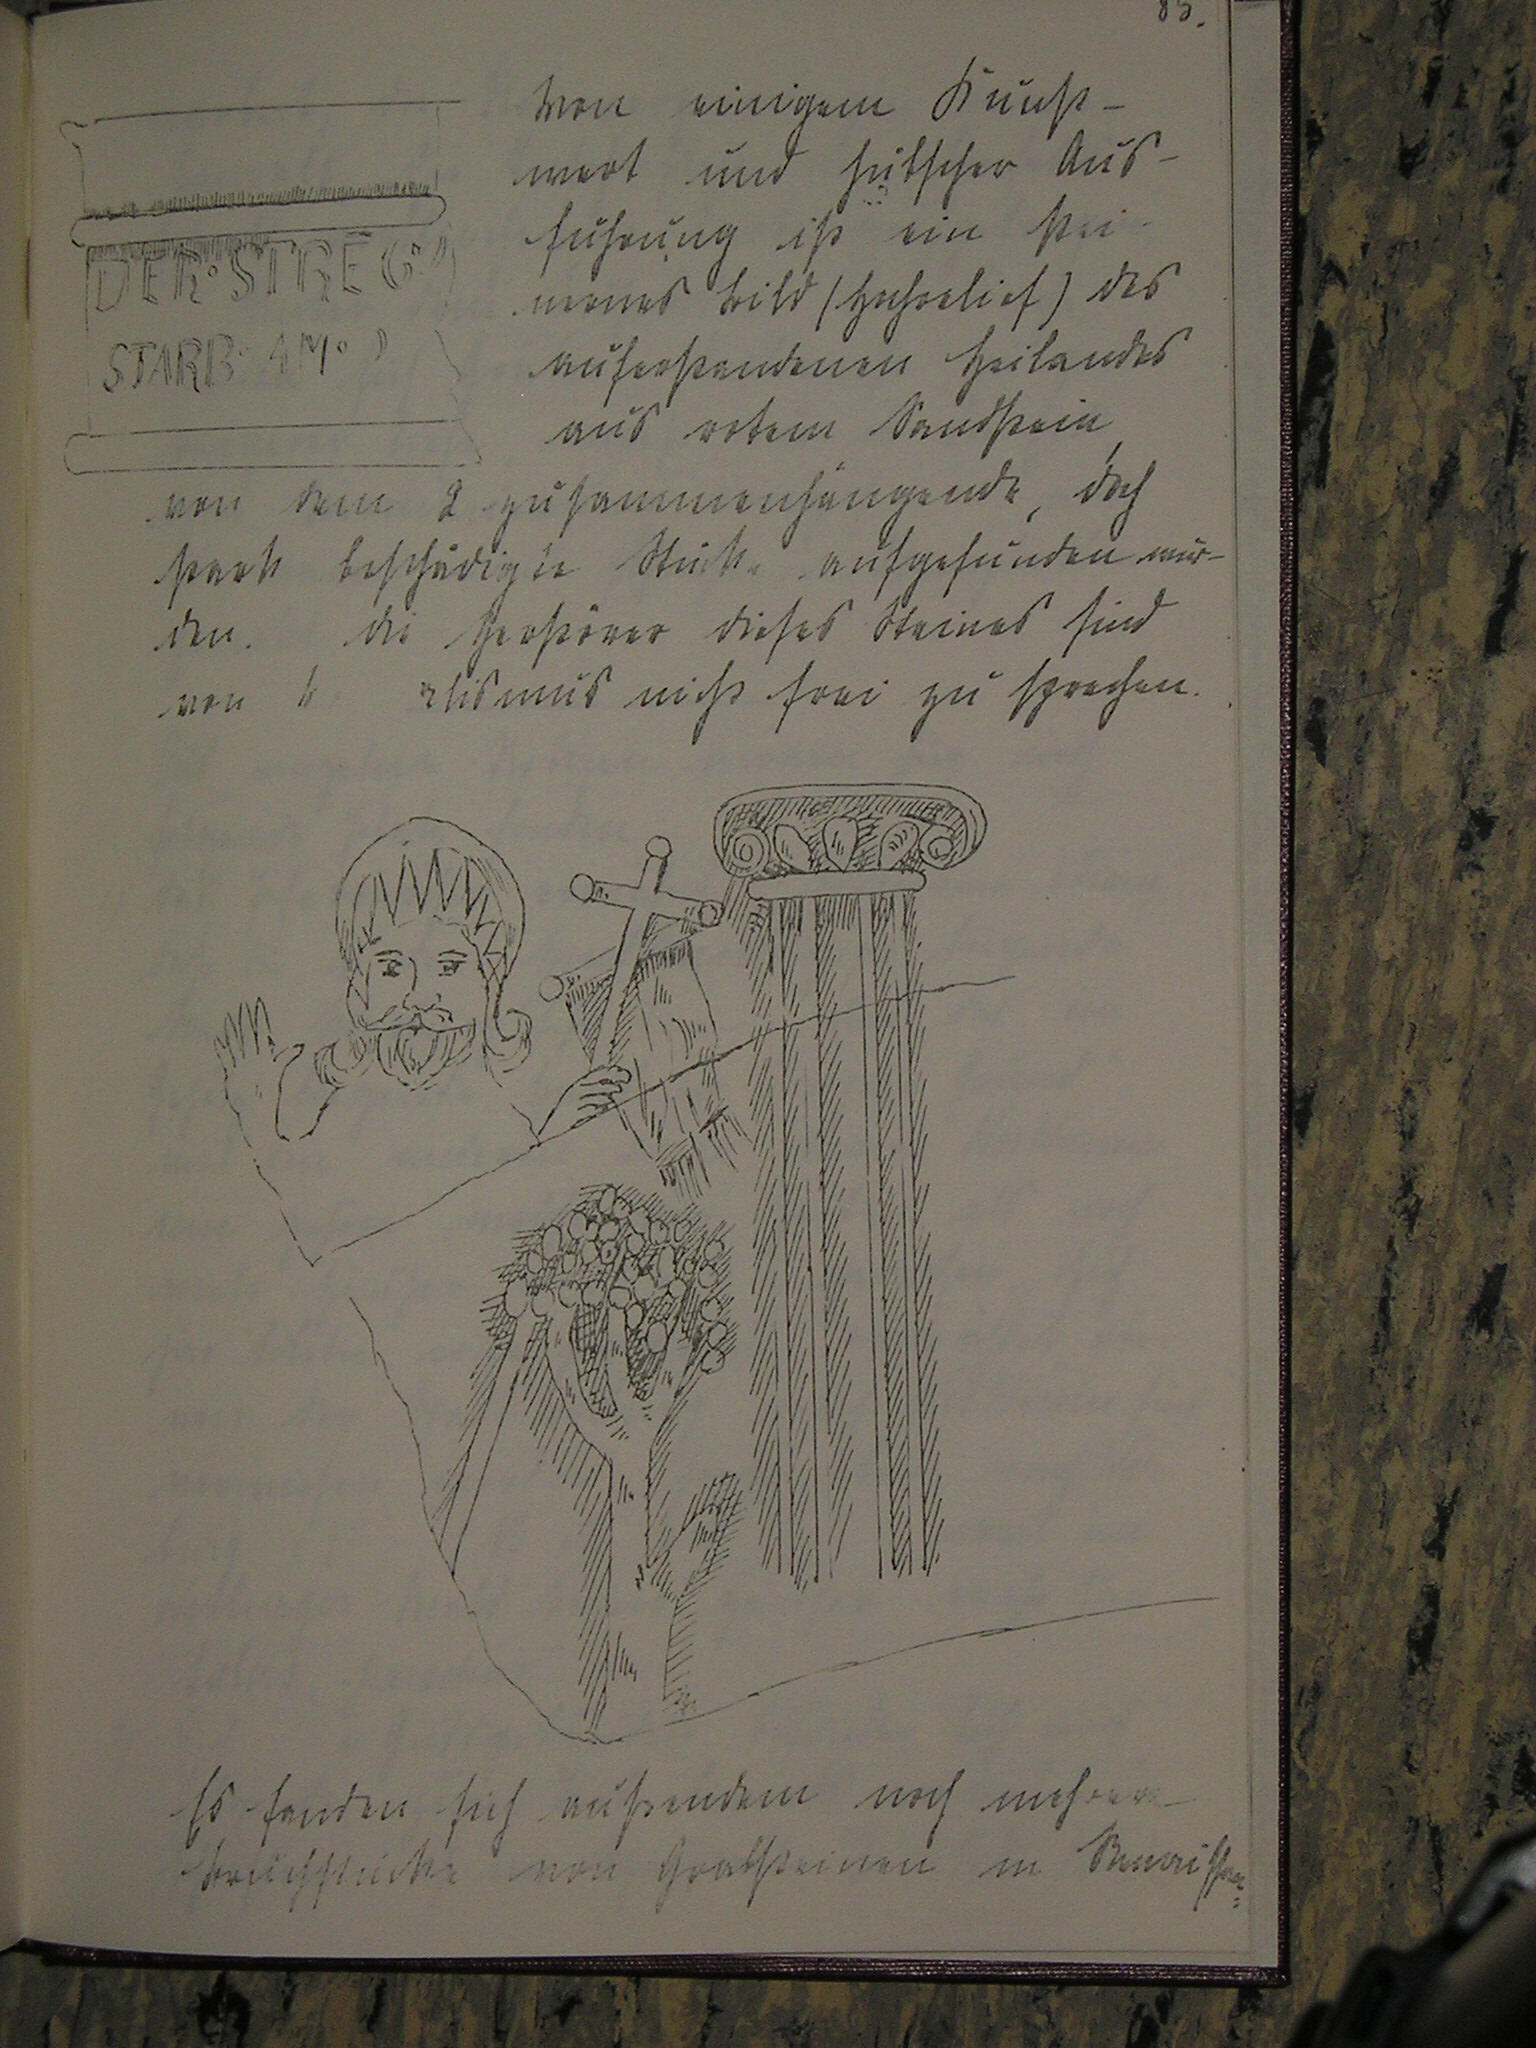 85.
DER · STRE G
STARB · AM ·
Von einigem Kunst-
wert und hübscher Aus-
führung ist ein stei-
nernes Bild (Hochrelief) des
auferstandenen Heilandes
aus rotem Sandstein,
von dem 2 zusammenhängende, doch
stark beschädigte Stücke aufgefunden wur-
den. Die Zerstörer dieses Steines sind
von nicht frei zu sprechen.
Es fanden sich außerdem noch mehrere
Bruchstücke von Grabsteinen in